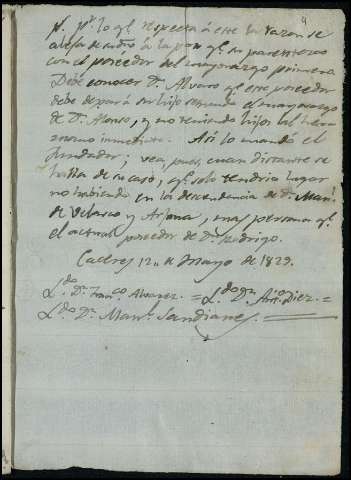 pr. lo ql. respecta á este la razon se
aleja de
con el poseedor del mayorazgo primero
Debe conocer Dn. Alvaro ql. este poseedor
debe dejar á su hijo segundo el mayorazgo
de Dn. Alonso, y no teniendo hijos al
inmediato. Asi lo mandó el
fundador; vea, pues, cuan distante se
halla de su caso, ql. solo tendria lugar
no habiendo en la descendencia de Dn. Manl.
de Velasco y Arjona, mas persona ql.
el actual poseedor de Dn. Rodrigo.
Caceres 12 de Mayo de 1829.
Ldo. Dn. Franco. Alvarez = Ldo. Dn. Anto. Diez =
Ldo. Dn. Manl. Sandianes